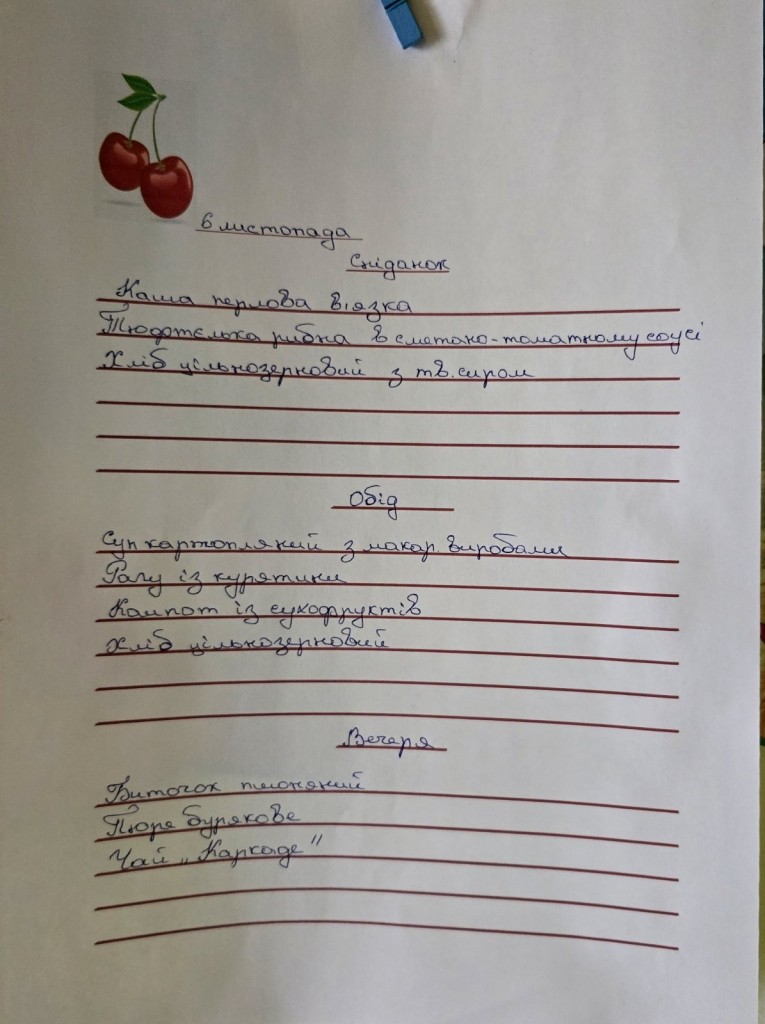 6 листопада
Сніданок
Каша перлова в'язка
Тюфтєлька рибна в сметано-томатному соусі
Хліб цільнозерновий з тв. сиром
Обід
Суп картопляний з макар. виробами
Рагу із курятини
Компот із сухофруктів
Хліб цільнозерновий
Вечеря
Биточок пшоняний
Пюре бурякове
Чай „Каркаде"